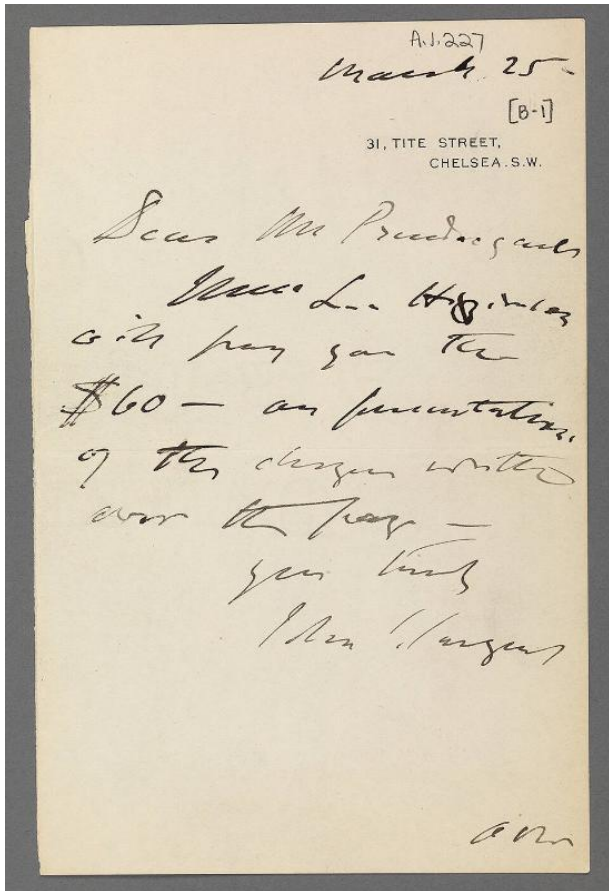 A.J.227
March 25-
[B-1]
31, TITE STREET,
CHELSEA.S.W.
Dear Mr Prendergast
Messrs Lee Higginson
will pay you the
$60 — on presentation
of the cheque written
over the page —
yours truly
John S. Sargent
over